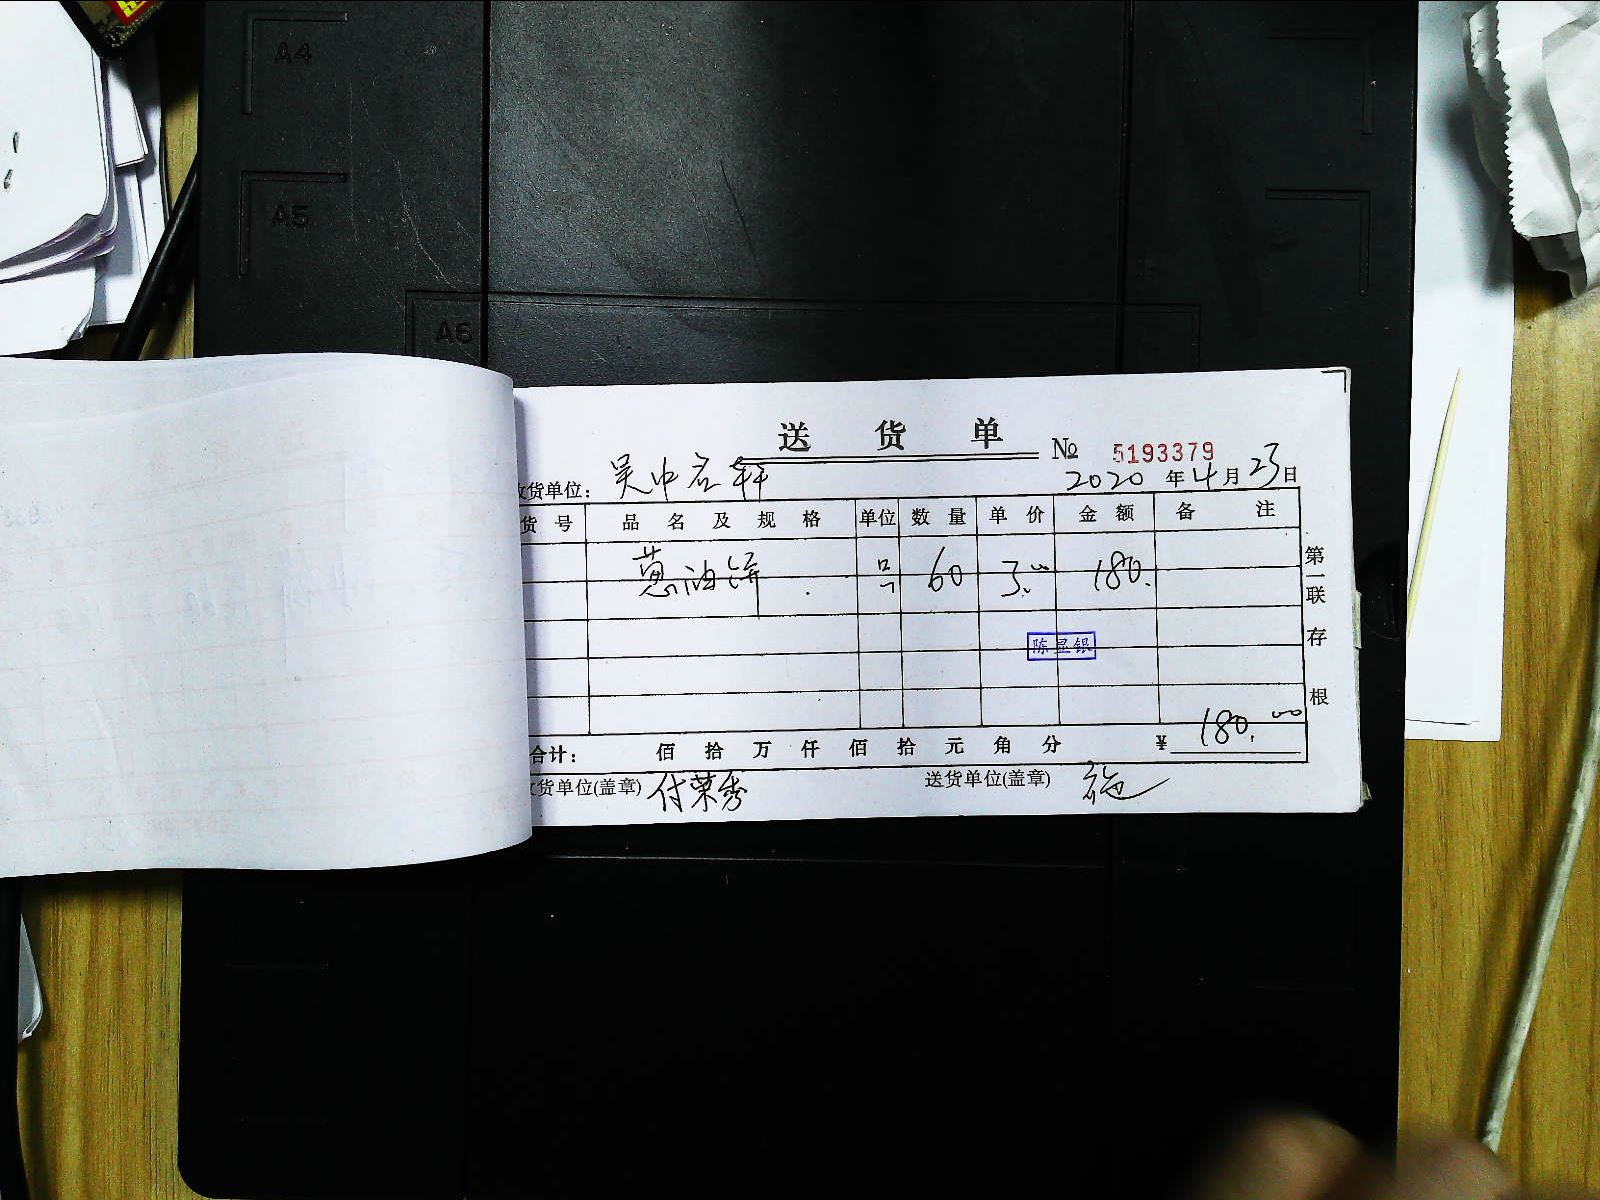 A4
A5
A6
送 货 单
№ 5193379
收货单位： 吴中名轩 2020 年 4 月 23 日
货 号 品 名 及 规 格 单位 数 量 单 价 金 额 备 注
葱油饼 60 3.00 180.
陈显银
第一联 存根
合计： 佰 拾 万 仟 佰 拾 元 角 分 ¥ 180.00
收货单位(盖章) 付荣秀 送货单位(盖章) 施